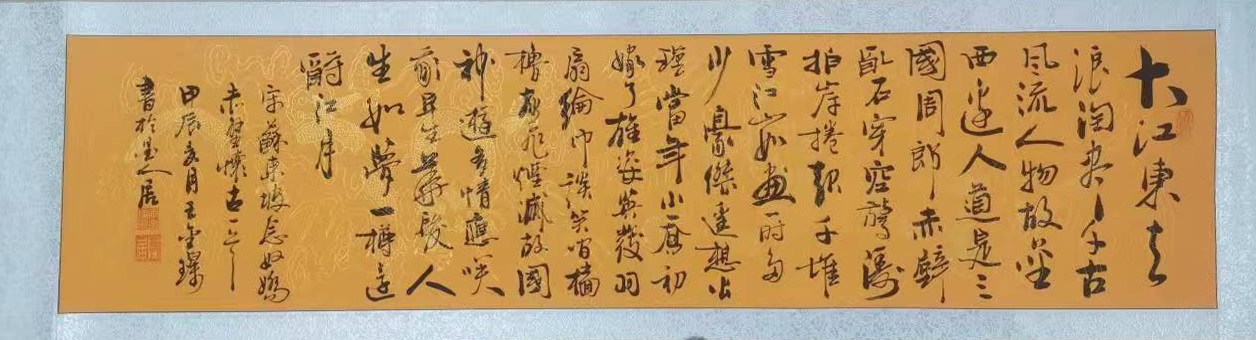 大江東去
浪淘盡千古
風流人物故壘
西邊人道是三
國周郎赤壁
亂石穿空驚濤
拍岸捲起千堆
雪江山如畫一時多
少豪傑遙想公
瑾當年小喬初
嫁了雄姿英發羽
扇綸巾談笑間檣
櫓灰飛煙滅故國
神遊多情應笑
我早生華髮人
生如夢一樽還
酹江月
宋蘇東坡念奴嬌
赤壁懷古一首
甲辰亥月王金
書於墨人居